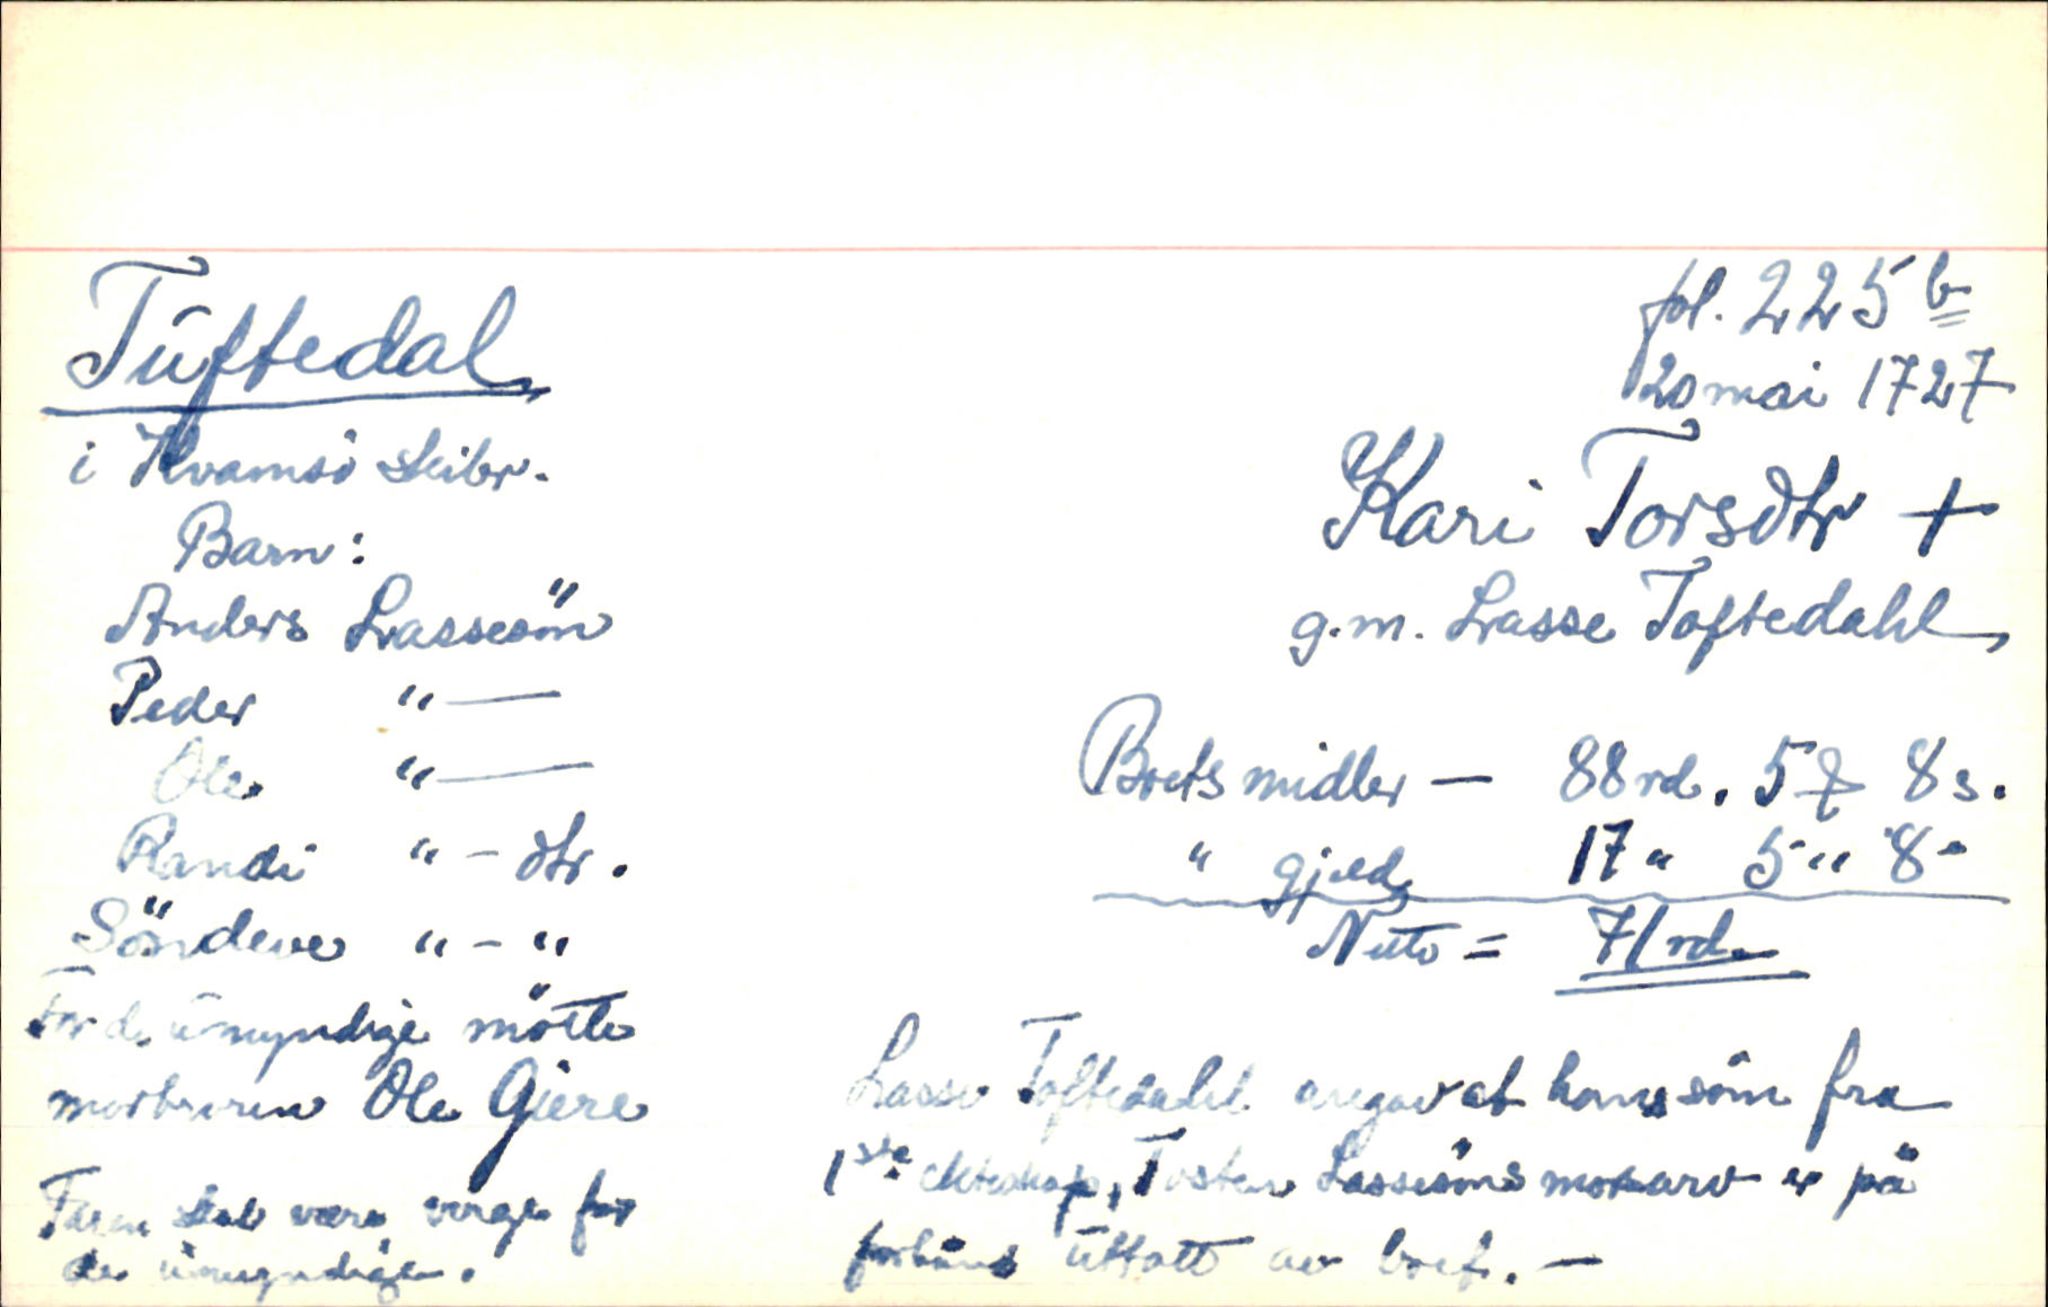 Tüftedal
i Kvamsö skibr.
Barn:
Anders Lassesön
Peder " —
Ole " —
Randi " – dtr.
Söndeve " – "
For de ümyndige mötte
morbroren Ole Gjere
Faren skal være verge for
de ümyndige.
fol. 225 b
20 mai 1727
Kari Torsdtr +
g.m. Lasse Toftedahl
Boets midler — 88 rd. 5 ₰ 8 s.
" gjeld 17 " 5 " 8 "
Netto = 71 rd.
Lasse Toftedahl angav at hans sön fra
1ste ekteskap, Tosten Lassesöns morsarv er på
forhånd üttatt av boet. —